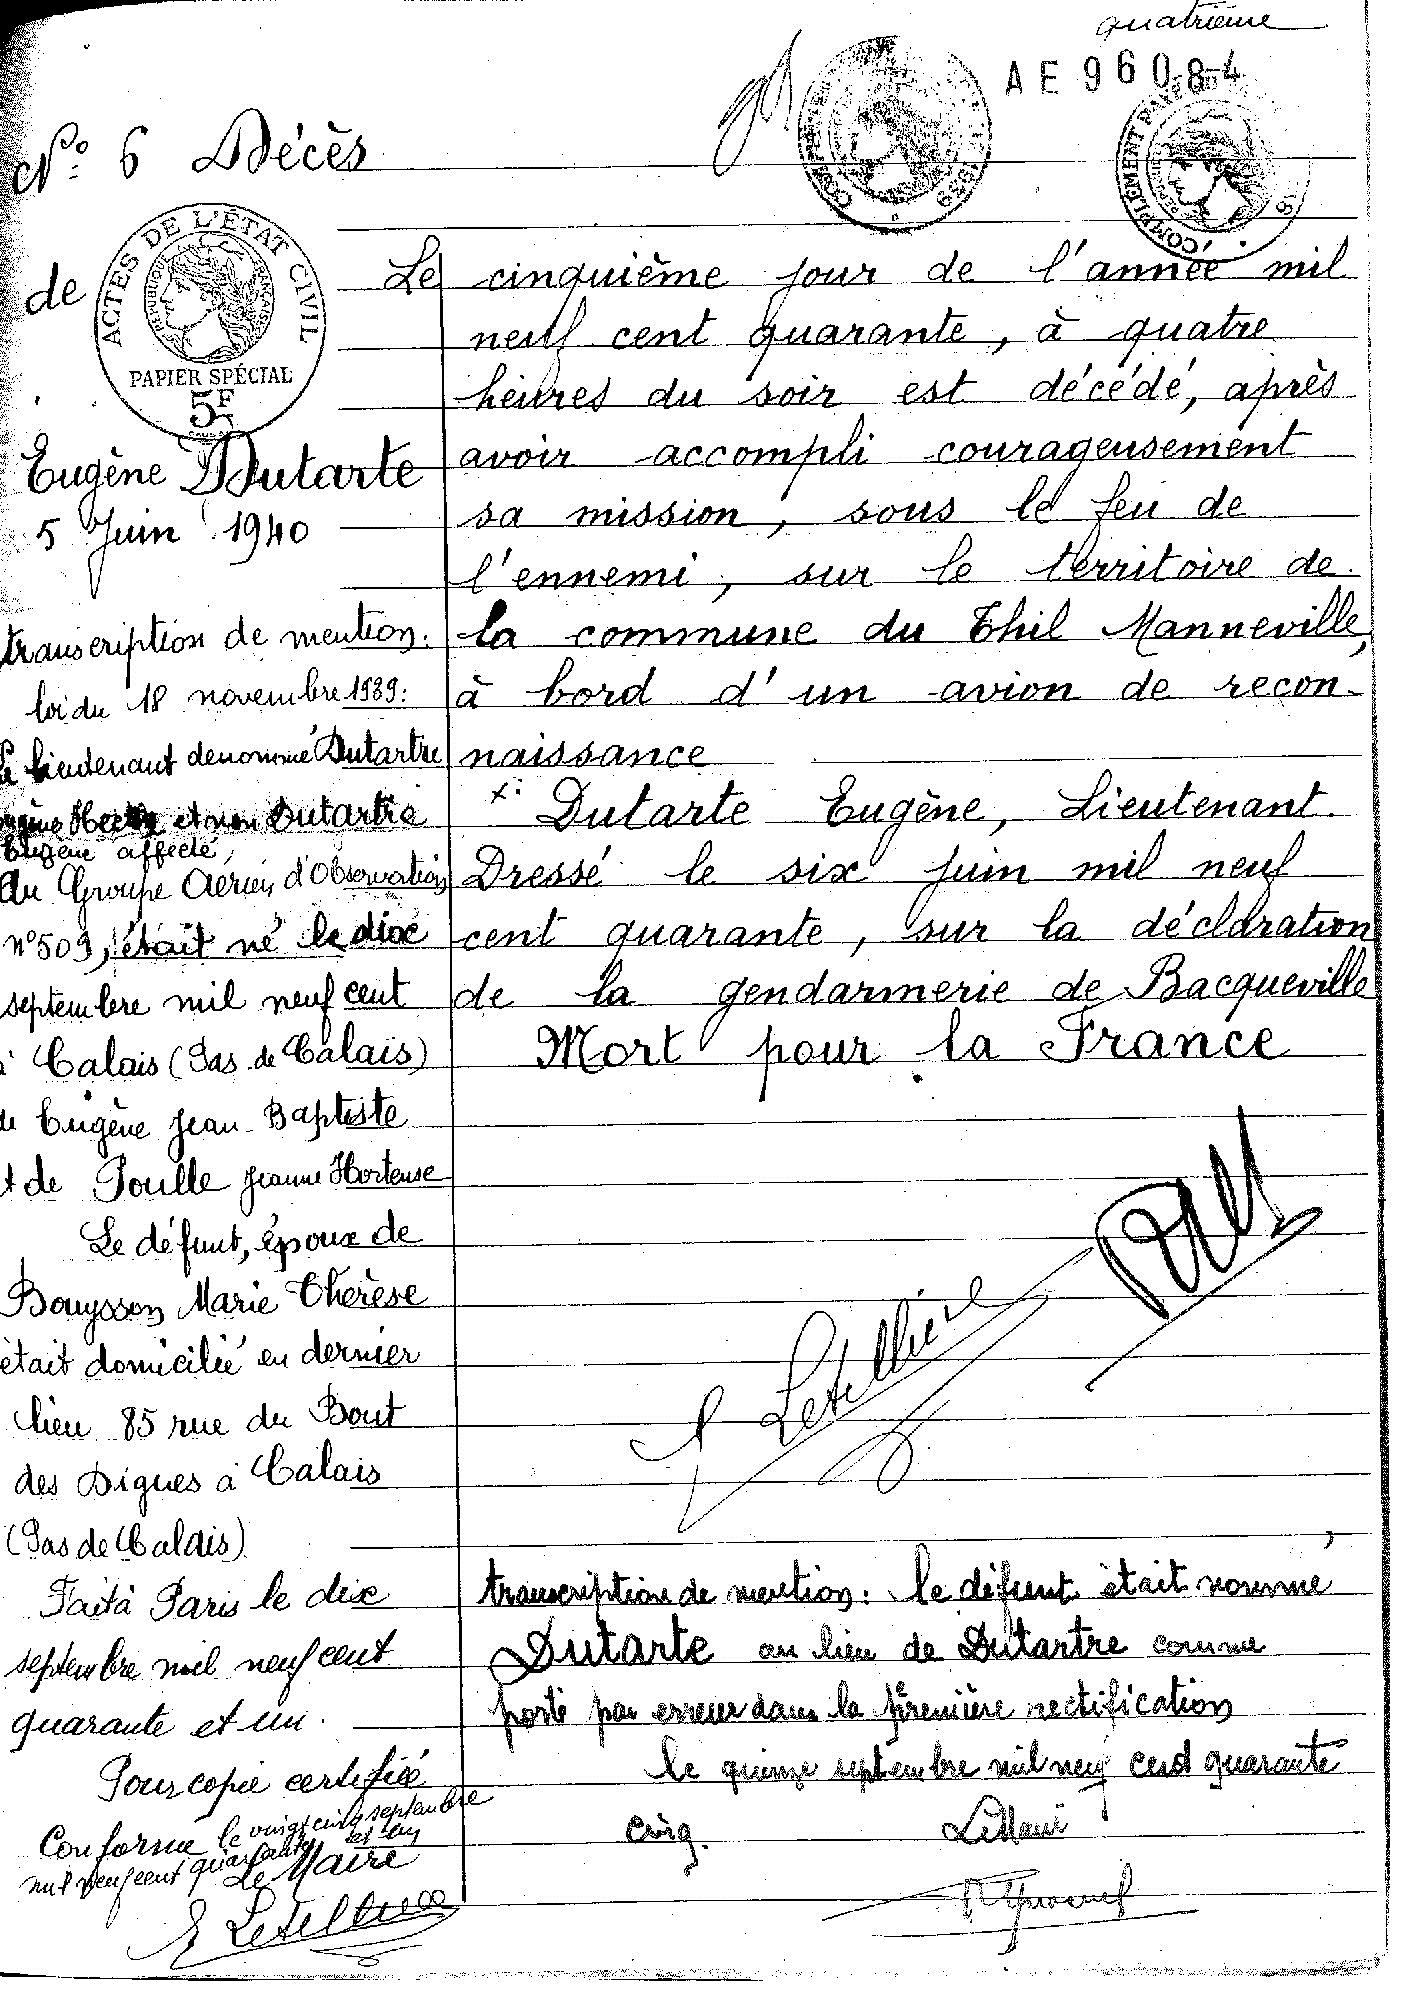 quatrième
AE 96084
N° 6 Décès
de
ACTES DE L'ÉTAT CIVIL
RÉPUBLIQUE FRANÇAISE
PAPIER SPÉCIAL
5F
COMPLEMENT
Eugène Dutarte
5 Juin 1940
transcription de mention.
loi du 18 novembre 1939:
Le lieutenant denommé Dutartre
et non Dutartre
Eugène affecté,
au Groupe Aérien d'Observation
n°509, était né le dix
septembre mil neuf cent
à Calais (Pas de Calais)
de Eugène Jean Baptiste
et de Poulle Jeanne Hortense
Le défunt, époux de
Bouysson Marie Thérèse
était domicilié en dernier
lieu 85 rue du Bout
des Digues à Calais
(Pas de Calais)
Fait à Paris le dix
septembre mil neuf cent
quarante et un.
Pour copie certifié
Conforme le vingt cinq septembre
mil neuf cent quarante et un
Le Maire
E Letellier
Le cinquième jour de l'année mil
neuf cent quarante, à quatre
heures du soir est décédé, après
avoir accompli courageusement
sa mission, sous le feu de
l'ennemi, sur le territoire de
la commune du Thil Manneville,
à bord d'un avion de recon-
naissance
x: Dutarte Eugène, Lieutenant.
Dressé le six juin mil neuf
cent quarante, sur la déclaration
de la gendarmerie de Bacqueville
Mort pour la France
Letellier
transcription de mention: le défunt était nommé
Dutarte au lieu de Dutartre comme
porté par erreur dans la première rectification
le quinze septembre mil neuf cent quarante
cinq. Le Maire